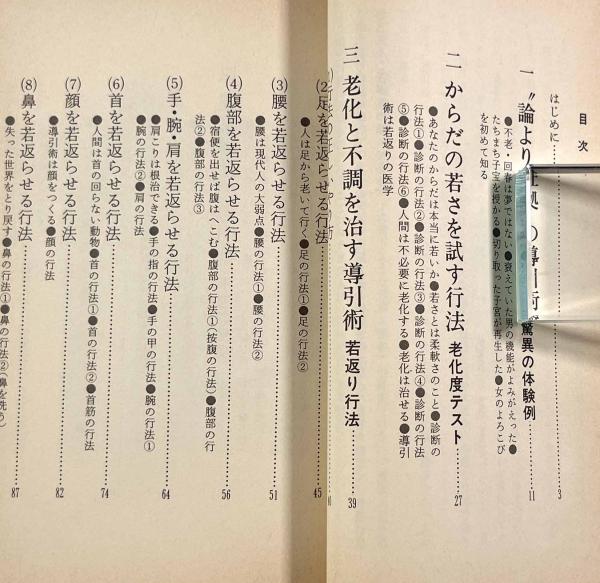 目次
はじめに……3
一 〝論より証拠〟の導引術 驚異の体験例……11
●不老・回春は夢ではない●衰えていた男の機能がよみがえった●
たちまち子宝を授かる●切り取った子宮が再生した●女のよろこび
を初めて知る
二 からだの若さを試す行法 老化度テスト……27
●あなたのからだは本当に若いか●若さとは柔軟さのこと●診断の
行法①●診断の行法②●診断の行法③●診断の行法④●診断の行法
⑤●診断の行法⑥●人間は不必要に老化する●老化は治せる●導引
術は若返りの医学
三 老化と不調を治す導引術 若返り行法……39
(2)足を若返らせる行法……45
●人は足から老いて行く●足の行法①●足の行法②
(3)腰を若返らせる行法……51
●腰は現代人の大弱点●腰の行法①●腰の行法②
(4)腹部を若返らせる行法……56
●宿便を出せば腹はへこむ●腹部の行法①(按腹の行法)●腹部の行
法②●腹部の行法③
(5)手・腕・肩を若返らせる行法……64
●肩こりは根治できる●手の指の行法●手の甲の行法●腕の行法①
●腕の行法②●肩の行法
(6)首を若返らせる行法……74
●人間は首の回らない動物●首の行法①●首の行法②●首筋の行法
(7)顔を若返らせる行法……82
●導引術は顔をつくる●顔の行法
(8)鼻を若返らせる行法……87
●失った世界をとり戻す●鼻の行法①●鼻の行法②(鼻を洗う)